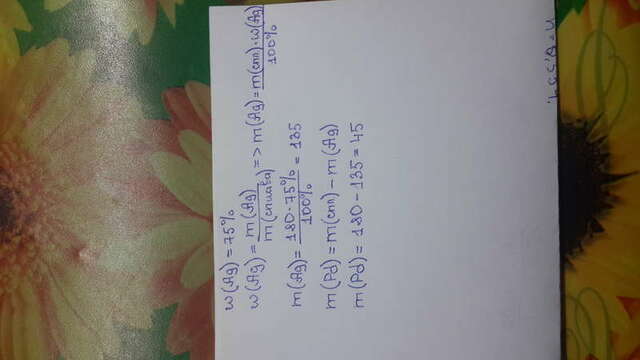 w(Ag) = 75%
w(Ag) = m(Ag) / m(сплава) => m(Ag) = m(спл) · w(Ag) / 100%
m(Ag) = 180 · 75% / 100% = 135
m(Pd) = m(спл) – m(Ag)
m(Pd) = 180 – 135 = 45